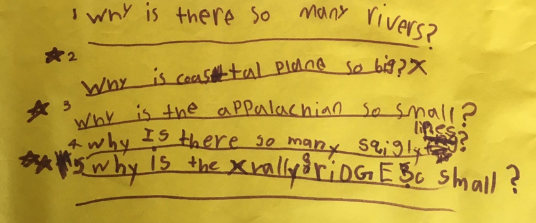 1 why is there so many rivers?
2 Why is coastal plane so big? X
3 why is the appalachian so small?
4 why Is there so many sqigly lines?
5 why is the X vally & RiDGE so small?